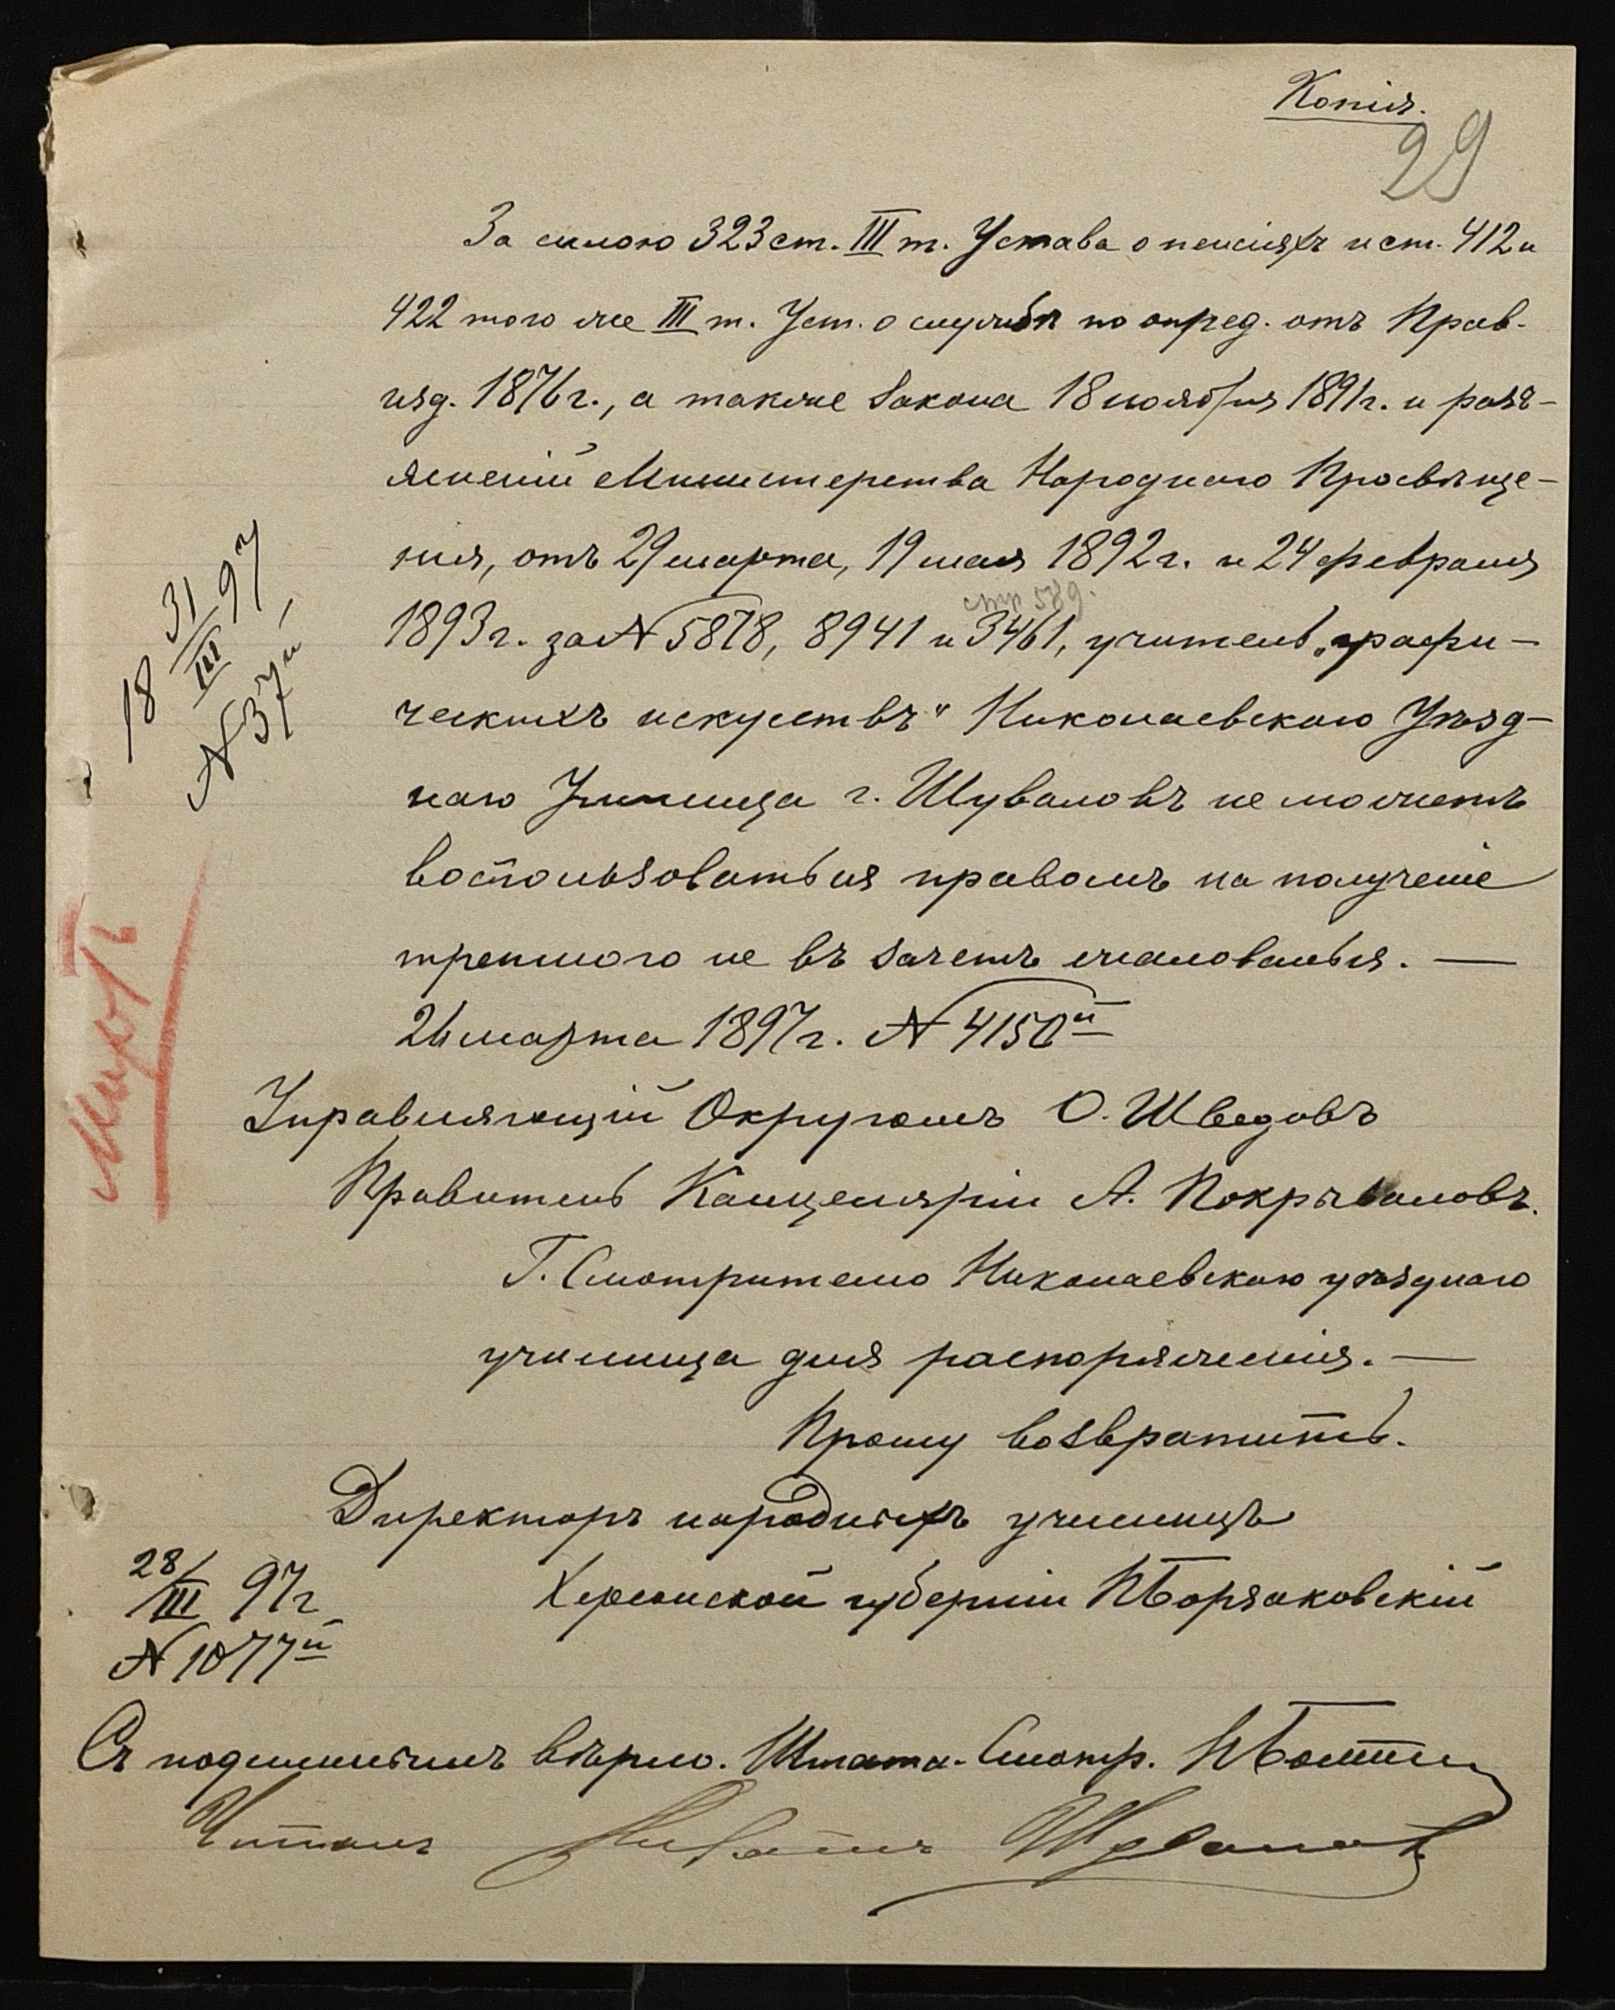 Копія.
29
За силою 323 ст. III т. Устава о пенсіяхъ и ст. 412 и
422 того же III т. Уст. о службѣ по опред. отъ Прав.
изд. 1876 г., а также закона 18 ноября 1891 г. и разъ-
ясненій Министерства Народнаго Просвѣще-
нія, отъ 29 марта, 19 мая 1892 г. и 24 февраля
стр 589.
1893 г. за № 5878, 8941 и 3461, учитель „графи-
ческихъ искуствъ" Николаевскаго Уѣзд-
наго Училища г. Шуваловъ не можетъ
воспользоваться правомъ на полученіе
третного не въ зачетъ жалованья. —
26 марта 1897 г. № 4150й
Управляющій Округомъ О. Шведовъ
Правитель Канцеляріи А. Покрываловъ.
Г. Смотрителю Николаевскаго уѣзднаго
училища для распоряженія. —
Прошу возвратить.
Директоръ народныхъ училищъ
Херсонской губерніи
28/III 97 г
№ 1077й
Съ подлиннымъ вѣрно. Штатн. Смотр.
Читалъ
18 31/III 97
№ 37й